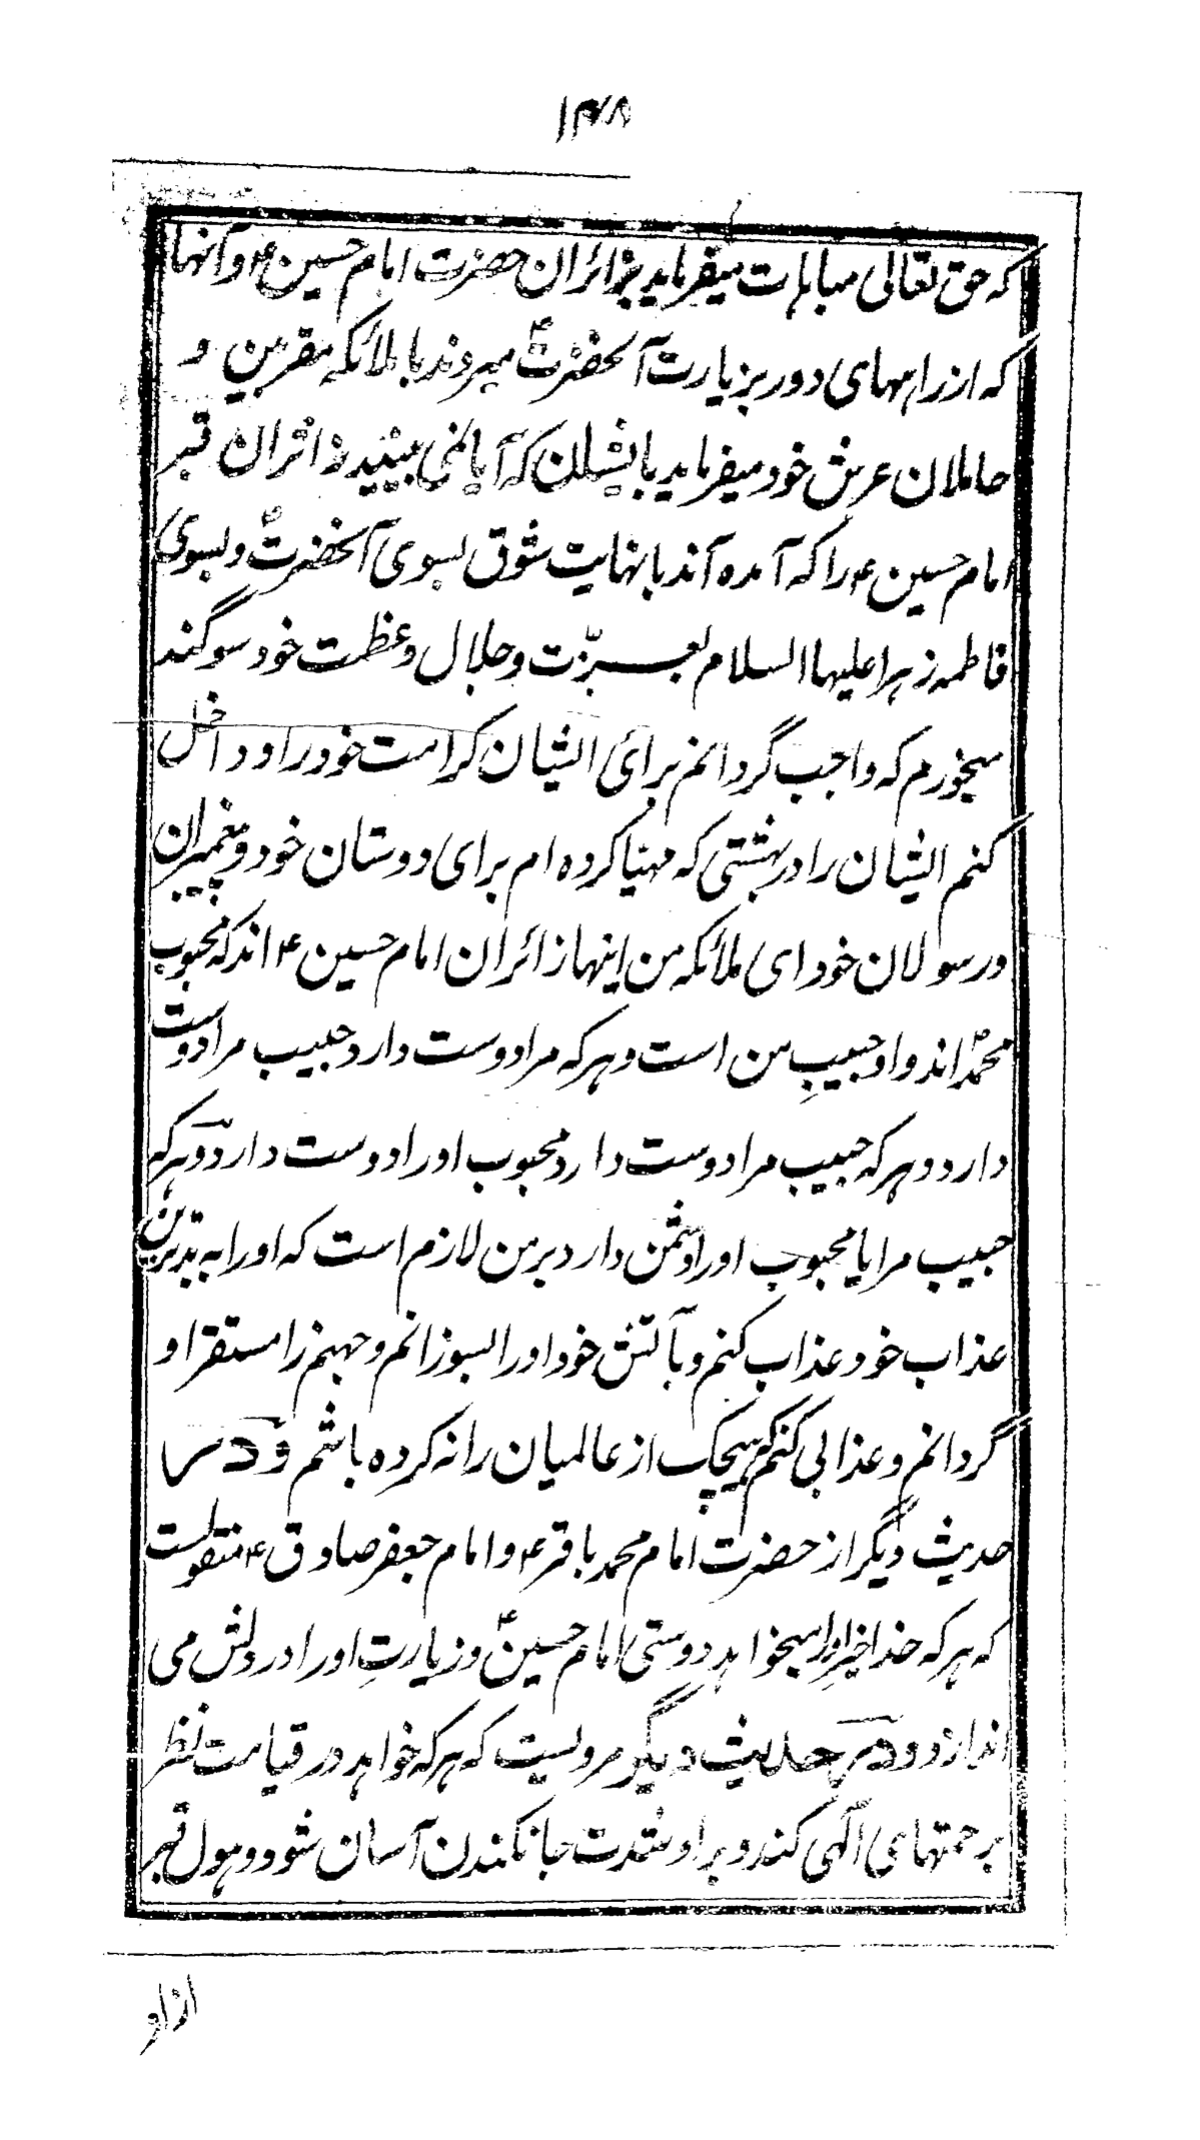 ۱۳۸
که حق تعالی مباهات میفرماید بزائران حضرت امام حسین ۴ وآنها
که از راههای دور بزیارت آنحضرتؑ میروند با ملائکه مقربین و
حاملان عرش خود میفرماید بایشان که آیا نمی بینید زائران قبر
امام حسین ۴ را که آمده اند با نهایت شوق بسوی آنحضرتؑ و بسوی
فاطمه زهرا علیها السلام بعزّت و جلال و عظمت خود سوگند
میخورم که واجب گردانم برای ایشان کرامت خود را و داخل
کنم ایشان را در بهشتی که مهیا کرده ام برای دوستان خود و پیغمبران
و رسولان خود ای ملائکه من اینها زائران امام حسین ۴ اند که محبوب
محمدؐ اند و او حبیبِ من است و هر که مرا دوست دارد حبیب مرا دوست
دارد و هر که حبیب مرا دوست دارد محبوب او را دوست دارد و هر که
حبیب مرا یا محبوب او را دشمن دارد بر من لازم است که او را به بدترین
عذاب خود عذاب کنم و بآتش خود او را بسوزانم و جهنم را مستقر او
گردانم و عذابی کنم که هیچک از عالمیان را نه کرده باشم و در
حدیث دیگر از حضرت امام محمد باقر ۴ و امام جعفر صادق ۴ منقولست
که هر که خدا خیرِ او را میخواهد دوستی امام حسینؑ و زیارتِ او را در دلش می
اندازد و در حدیث دیگر مرویست که هر که خواهد در قیامت نظر
برحمتهای الٓهی کند و بر او شدت جانکندن آسان شود و هول قبر
از او